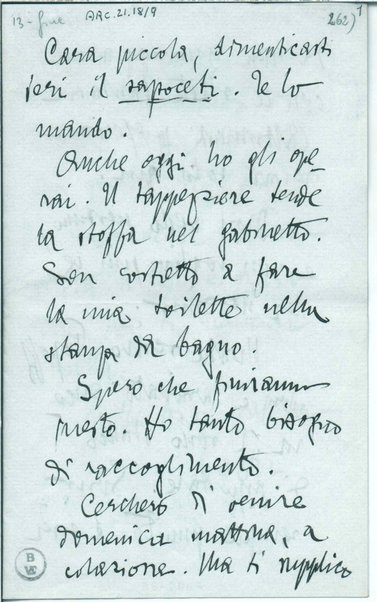 13 - fine
ARC.21.18/9
262) 1
Cara piccola, dimenticasti
ieri il sapoceti Te lo
mando.
Anche oggi ho gli ope-
rai. Il tappezziere tende
la stoffa nel gabinetto.
Son costretto a fare
la mia toilette nella
stanza da bagno.
Spero che finiranno
presto. Ho tanto bisogno
di raccoglimento.
Cercherò di venire
domenica mattina, a
colazione. Ma ti supplico
B
VE